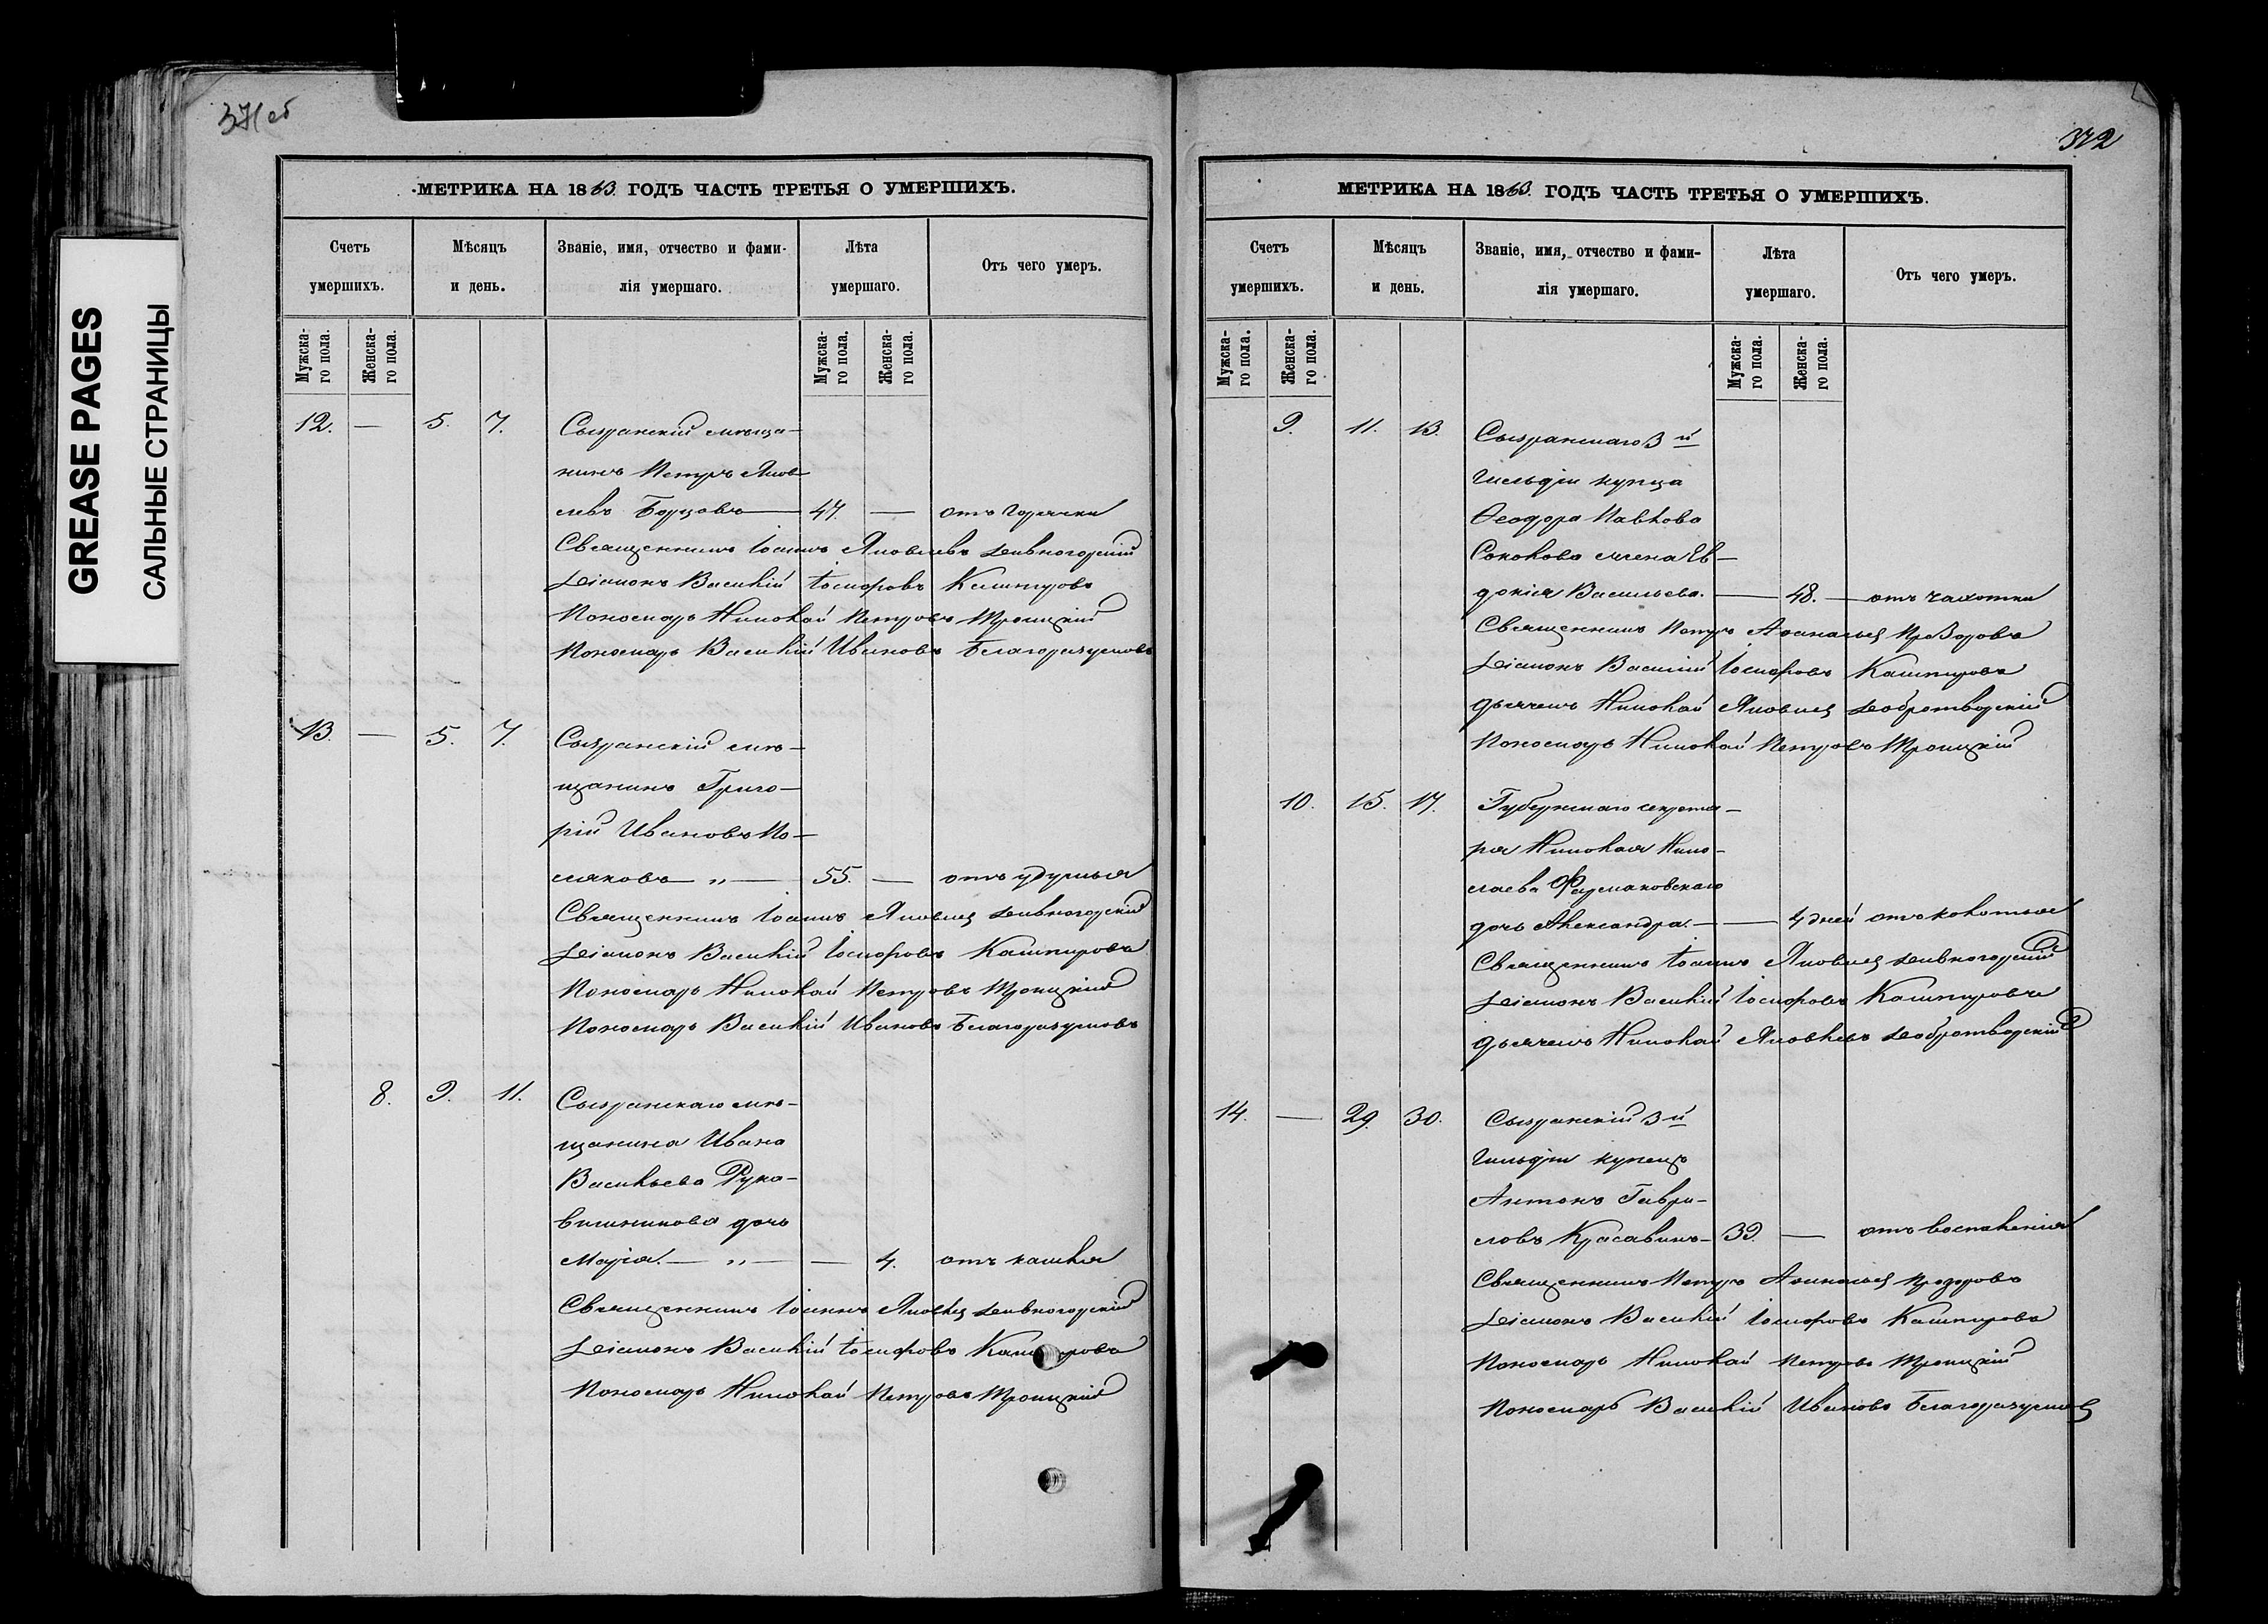 GREASE PAGES
САЛЬНЫЕ СТРАНИЦЫ
371 об
МЕТРИКА НА 1863 ГОДЪ ЧАСТЬ ТРЕТЬЯ О УМЕРШИХЪ.
Счетъ умершихъ.
Мѣсяцъ и день.
Званіе, имя, отчество и фами-
лія умершаго.
Лѣта умершаго.
Отъ чего умеръ.
Мужска-
го пола.
Женска-
го пола.
Мужска-
го пола.
Женска-
го пола.
12. — 5. 7. Сызранскій мѣща-
нинъ Петръ Яков
левъ Борцовъ — 47. — отъ горячки
Священникъ Іоаннъ Яковлевъ Дивногорскій
Діаконъ Василій Іосифовъ Кашпуровъ
Пономарь Николай Петровъ Троицкій
Пономарь Василій Ивановъ Благоразумовъ
13. — 5. 7. Сызранскій мѣ-
щанинъ Григо-
рій Ивановъ По-
ляковъ — „ — 55. — отъ удушья
Священникъ Іоаннъ Яковлев Дивногорскій
Діаконъ Василій Іосифовъ Кашпировъ
Пономарь Николай Петровъ Троицкій
Пономарь Василій Ивановъ Благоразумовъ
8. 9. 11. Сызранскаго мѣ-
щанина Ивана
Васильева Рука-
вишникова дочь
Марія. — „ — — 4. отъ кашля
Священникъ Іоаннъ Яковлев Дивногорскій
Діаконъ Василій Іосифовъ Кашпировъ
Пономарь Николай Петровъ Троицкій
372
МЕТРИКА НА 1863 ГОДЪ ЧАСТЬ ТРЕТЬЯ О УМЕРШИХЪ.
Счетъ умершихъ.
Мѣсяцъ и день.
Званіе, имя, отчество и фами-
лія умершаго.
Лѣта умершаго.
Отъ чего умеръ.
Мужска-
го пола.
Женска-
го пола.
Мужска-
го пола.
Женска-
го пола.
9. 11. 13. Сызранскаго 3й
гильдіи купца
Ѳеодора Павлова
Соколова жена Ев-
докія Васильева. — 48. — отъ чахотки
Священникъ Петръ Аѳанасьев Прозоровъ
Діаконъ Василій Іосифовъ Кашпировъ
Дьячекъ Николай Яковлев Добротворскій
Пономарь Николай Петровъ Троицкій
10. 15. 17. Губернскаго секрета-
ря Николая Нико-
лаева Фармаковскаго
дочь Александра. — — 4 дней отъ колотья
Священникъ Іоаннъ Яковлев Дивногорскій
Діаконъ Василій Іосифовъ Кашпировъ
Дьячекъ Николай Яковлевъ Добротворскій
14. — 29. 30. Сызранскій 3й
гильдіи купецъ
Антонъ Гаври-
ловъ Красавинъ — 39. — отъ воспаленія
Священникъ Петръ Аѳанасьев Прозоровъ
Діаконъ Василій Іосифовъ Кашпировъ
Пономарь Николай Петровъ Троицкій
Пономарь Василій Ивановъ Благоразумов